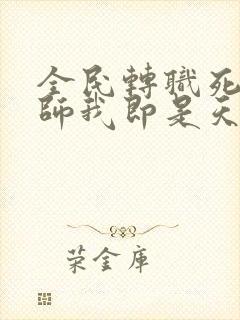 全民轉職死
師我即是天
荣金庫